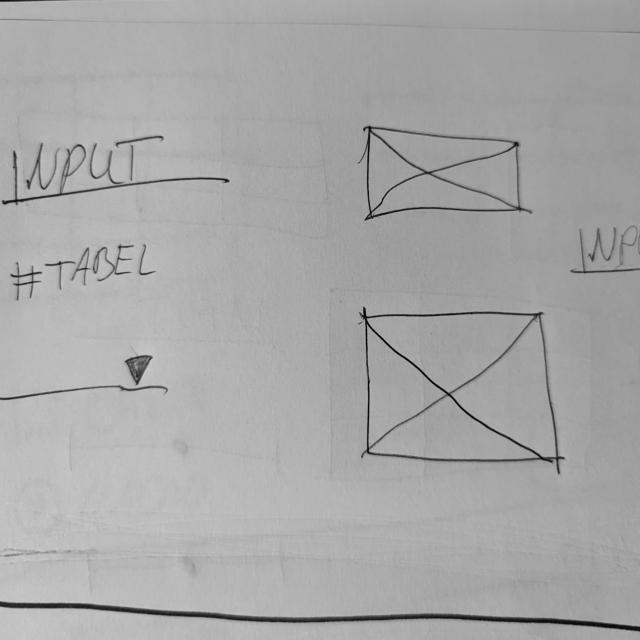 INPUT
#TABEL
INP